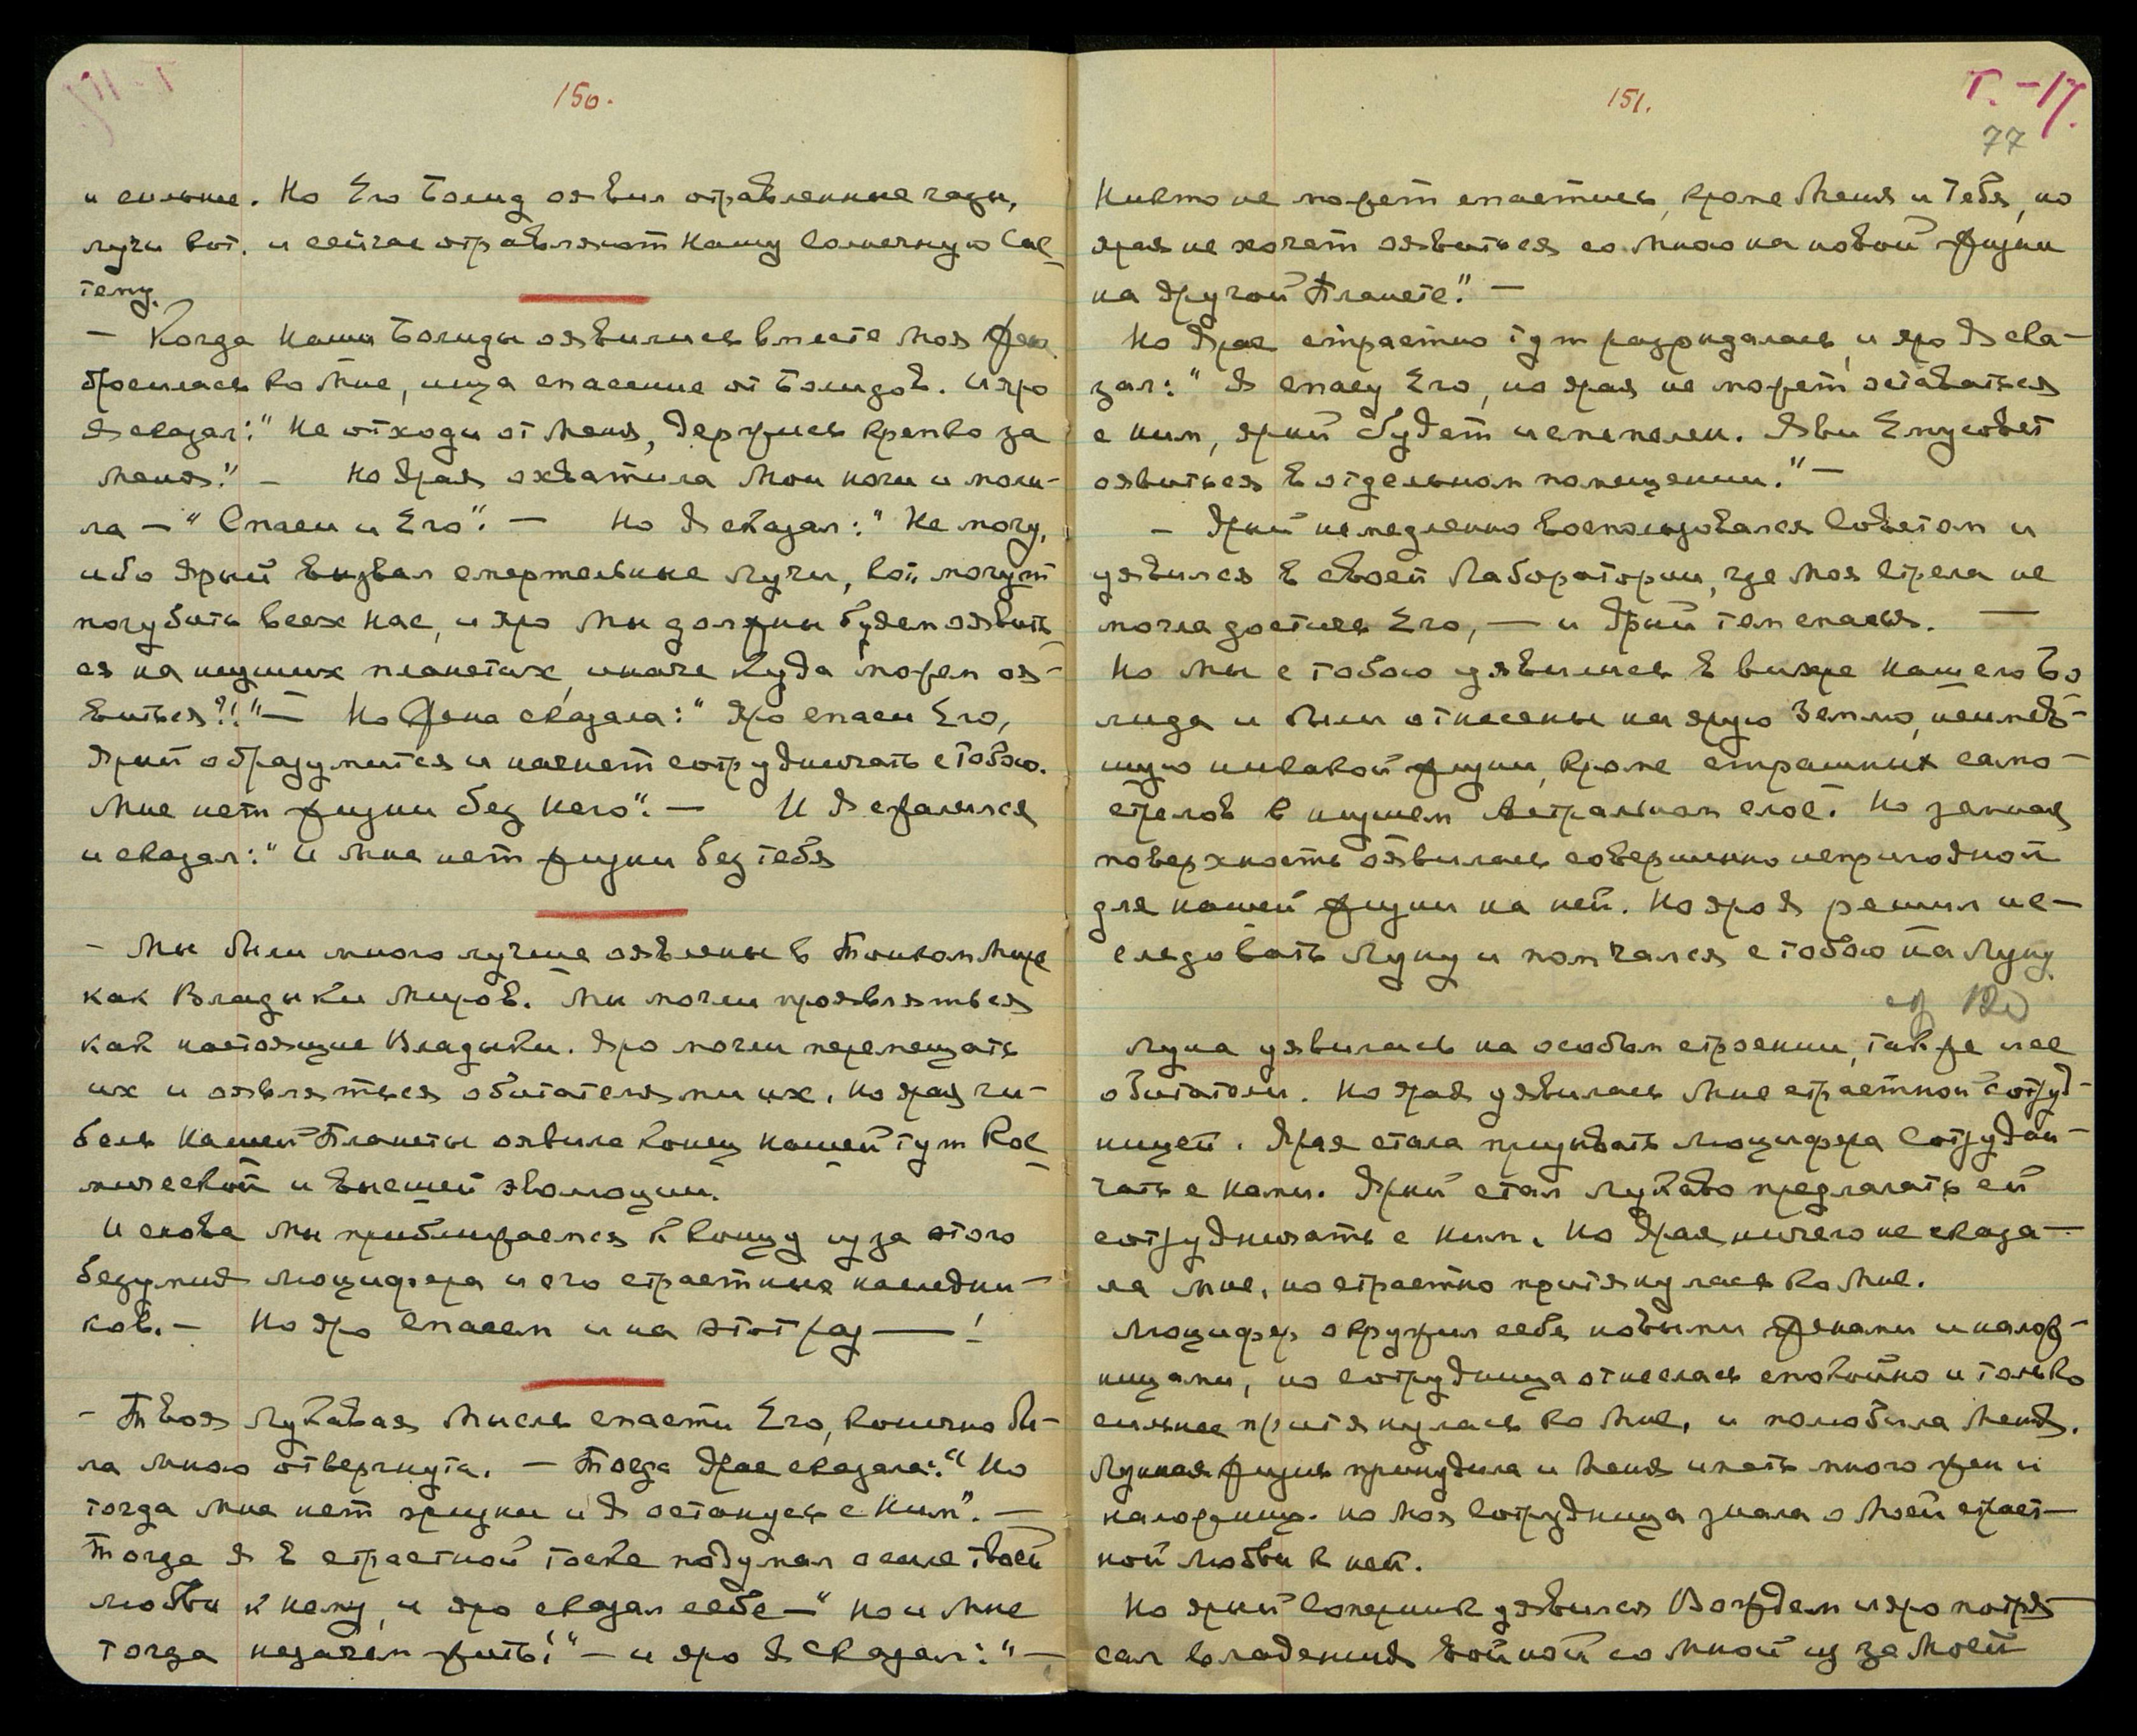 150.
и сильне. Но Его Болид оявил отравленные газы,
лучи кот. и сейчас отравляют Нашу Солнечную Сис-
тему.
— Когда Наши Болиды оявились вместе Моя Жена
бросилась ко Мне, ища спасение от Болидов. И яро
Я сказал: "Не отходи от Меня, держись крепко за
Меня." — Но Ярая охватила Мои ноги и моли-
ла — "Спаси и Его". — Но Я сказал: "Не могу,
ибо Ярый вызвал смертельные Лучи, кот. могут
погубить всех Нас, и яро Мы должны будем оявить
ся на низших планетах, иначе куда можем оя-
виться?!" — Но Жена сказала: "Яро спаси Его,
Ярый образумится и начнет сотрудничать с Тобою.
Мне нет жизни без Него". — И Я сжалился
и сказал: "И Мне нет жизни без тебя
— Мы были много лучше оявлены в Тонком Мире
как Владыки Миров. Мы могли проявляться
как настоящие Владыки. Яро могли перемещать
их и оявляться обитателями их. Но ярая ги-
бель Нашей Планеты оявила конец Нашей тут Кос
мической и Высшей эволюции.
И снова Мы приближаемся к концу из за этого
безумия Люцифера и его страстных наследни-
ков. — Но яро Спасем и на этот раз — !
— Твоя Лукавая Мысль спасти Его, конечно бы-
ла Мною отвергнута. — Тогда Ярая сказала: "Но
тогда Мне нет жизни и Я останусь с Ним". —
Тогда Я в страстной тоске подумал о силе твоей
любви к нему, и яро сказал себе — "Но и Мне
тогда незачем жить!" — и яро Я сказал: " —
151.
Т. -17.
77
Никто не может спастись, кроме Меня и Тебя, но
ярая не хочет оявиться со Мною на новой жизни
на другой Планете." —
Но Ярая страстно тут разрыдалась, и яро Я ска-
зал: "Я спасу Его, но ярая не может оставаться
с ним, ярый будет испепелен. Яви Ему совет
оявиться в отдельном помещении." —
— Ярый немедленно воспользовался Советом и
уявился в своей Лаборатории, где Моя Стрела не
могла достичь Его, — и Ярый там спасся. —
Но Мы с тобою уявились в вихре Нашего Бо
лида и были отнесены на ярую Землю, неимев-
шую никакой жизни, кроме страшных само-
стрелов в низшем Астральном слое. Но земная
поверхность оявилась совершенно непригодной
для нашей жизни на ней. Но яро Я решил ис-
следовать Луну и помчался с тобою на Луну.
Луна уявилась на особом строении, также и ее
обитатели. Но ярая уявилась Мне страстной сотруд-
ницей. Ярая стала призывать Люцифера Сотрудни-
чать с Нами. Ярый стал Лукаво предлагать ей
сотрудничать с Ним. Но Ярая ничего не сказа-
ла Мне, но страстно притянулась ко Мне.
Люцифер окружил себя новыми женами и налож-
ницами, но сотрудница отнеслась спокойно и только
сильнее притянулась ко Мне, и полюбила Меня.
Лунная жизнь принудила и Меня иметь много жен и
наложниц. Но Моя Сотрудница знала о Моей страст-
ной любви к ней.
Но ярый Соперник уявился Вождем и яро потря
сал владения войной со Мной из за Моей